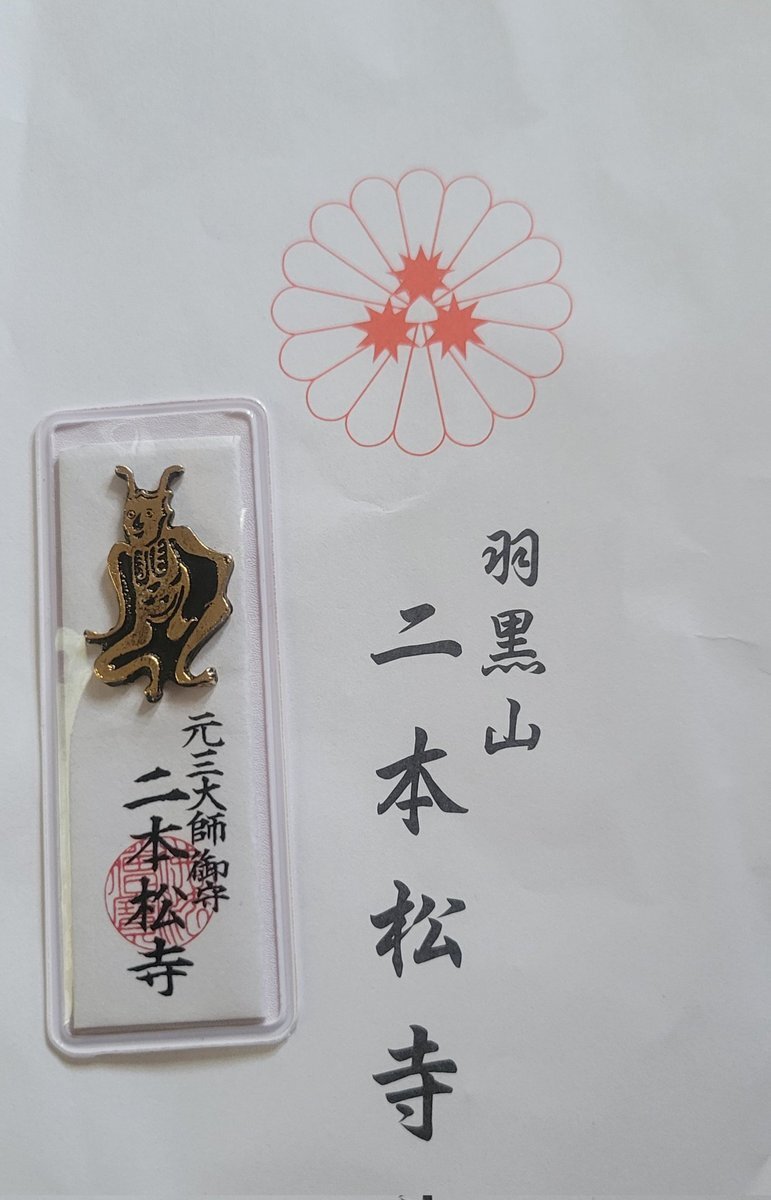 羽黒山
二本松寺
元三大師御守
二本松寺